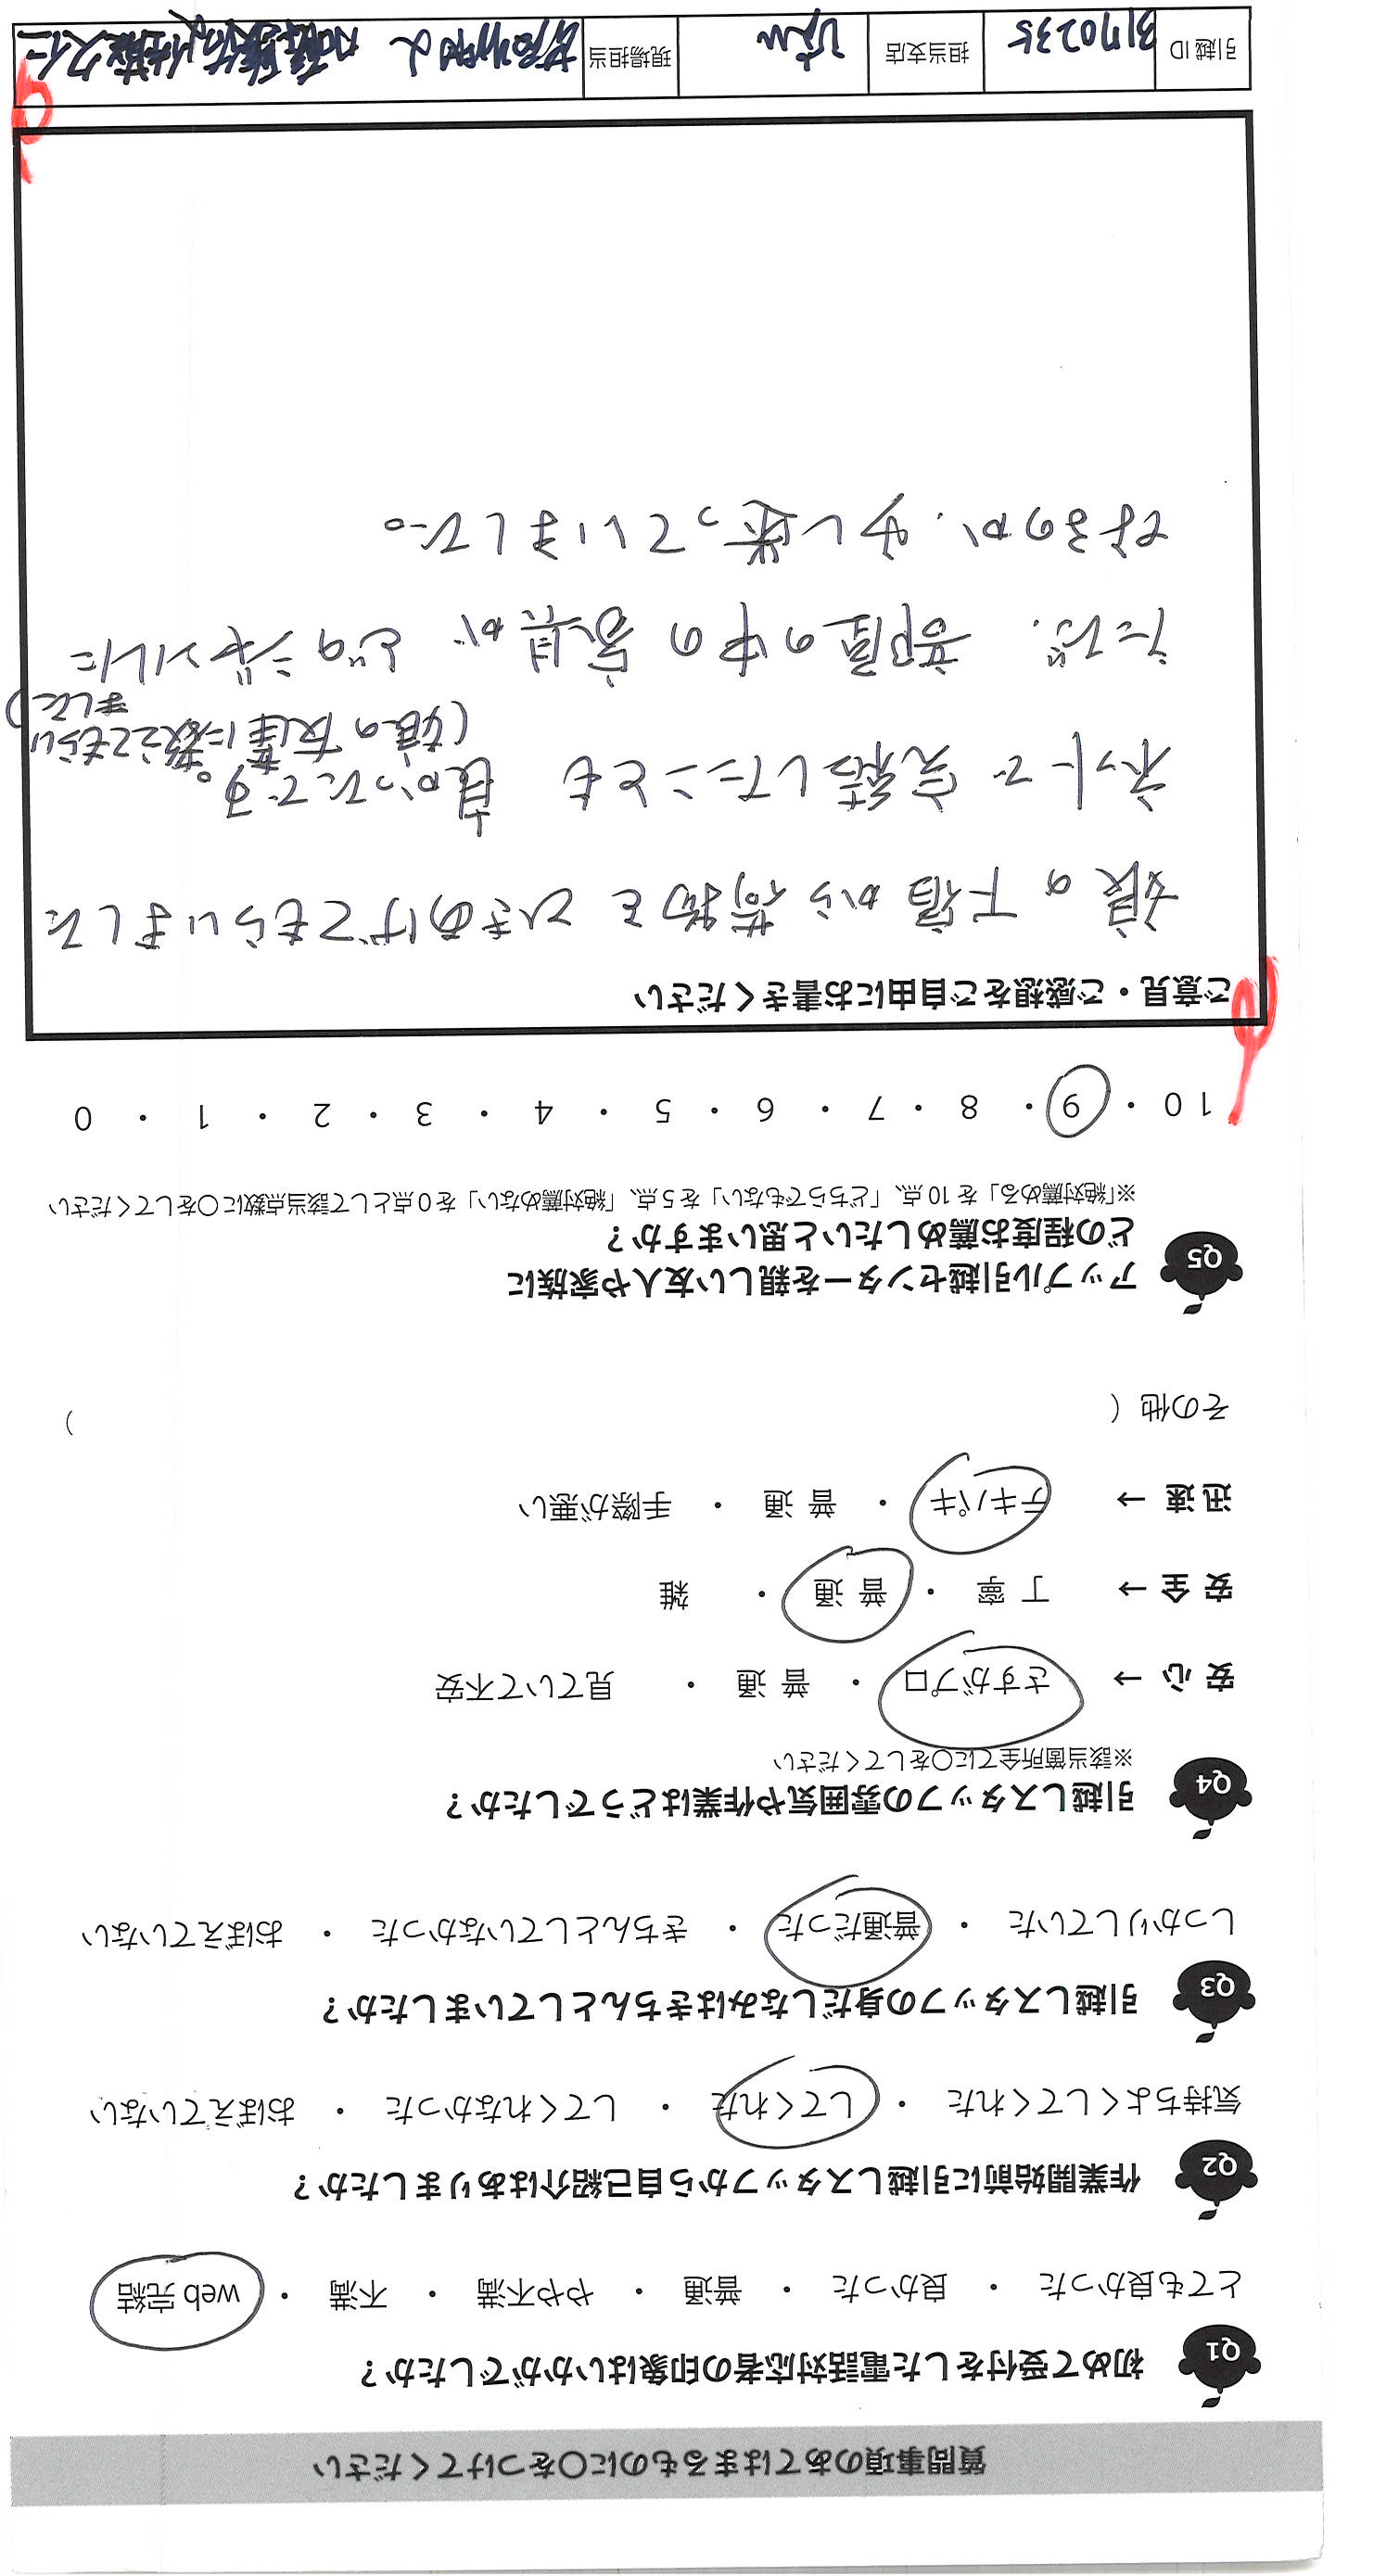 質問事項のあてはまるものに〇をつけてください
Q1 初めて受付をした電話対応者の印象はいかがでしたか？
とても良かった ・ 良かった ・ 普通 ・ やや不満 ・ 不満 ・ web 完結
Q2 作業開始前に引越しスタッフから自己紹介はありましたか？
気持ちよくしてくれた ・ してくれた ・ してくれなかった ・ おぼえていない
Q3 引越しスタッフの身だしなみはきちんとしていましたか？
しっかりしていた ・ 普通だった ・ きちんとしていなかった ・ おぼえていない
Q4 引越しスタッフの雰囲気や作業はどうでしたか？
※該当箇所全てに〇をしてください
安 心 → さすがプロ ・ 普 通 ・ 見ていて不安
安 全 → 丁 寧 ・ 普 通 ・ 雑
迅 速 → テキパキ ・ 普 通 ・ 手際が悪い
その他（ ）
Q5 アップル引越センターを親しい友人や家族に
どの程度お薦めしたいと思いますか？
※「絶対薦める」を 10 点、「どちらでもない」を 5 点、「絶対薦めない」を 0 点として該当点数に〇をしてください
10 ・ 9 ・ 8 ・ 7 ・ 6 ・ 5 ・ 4 ・ 3 ・ 2 ・ 1 ・ 0
ご意見・ご感想をご自由にお書きください
娘の下宿から荷物をひきあげてもらいました
ネットで完結したことも良かったです。
(娘の友達に教えてもらい
ました)
ただ、部屋の中の家具がどのジャンルに
なるのか、少し迷っていました。
引越 ID 3170235 担当支店 現場担当